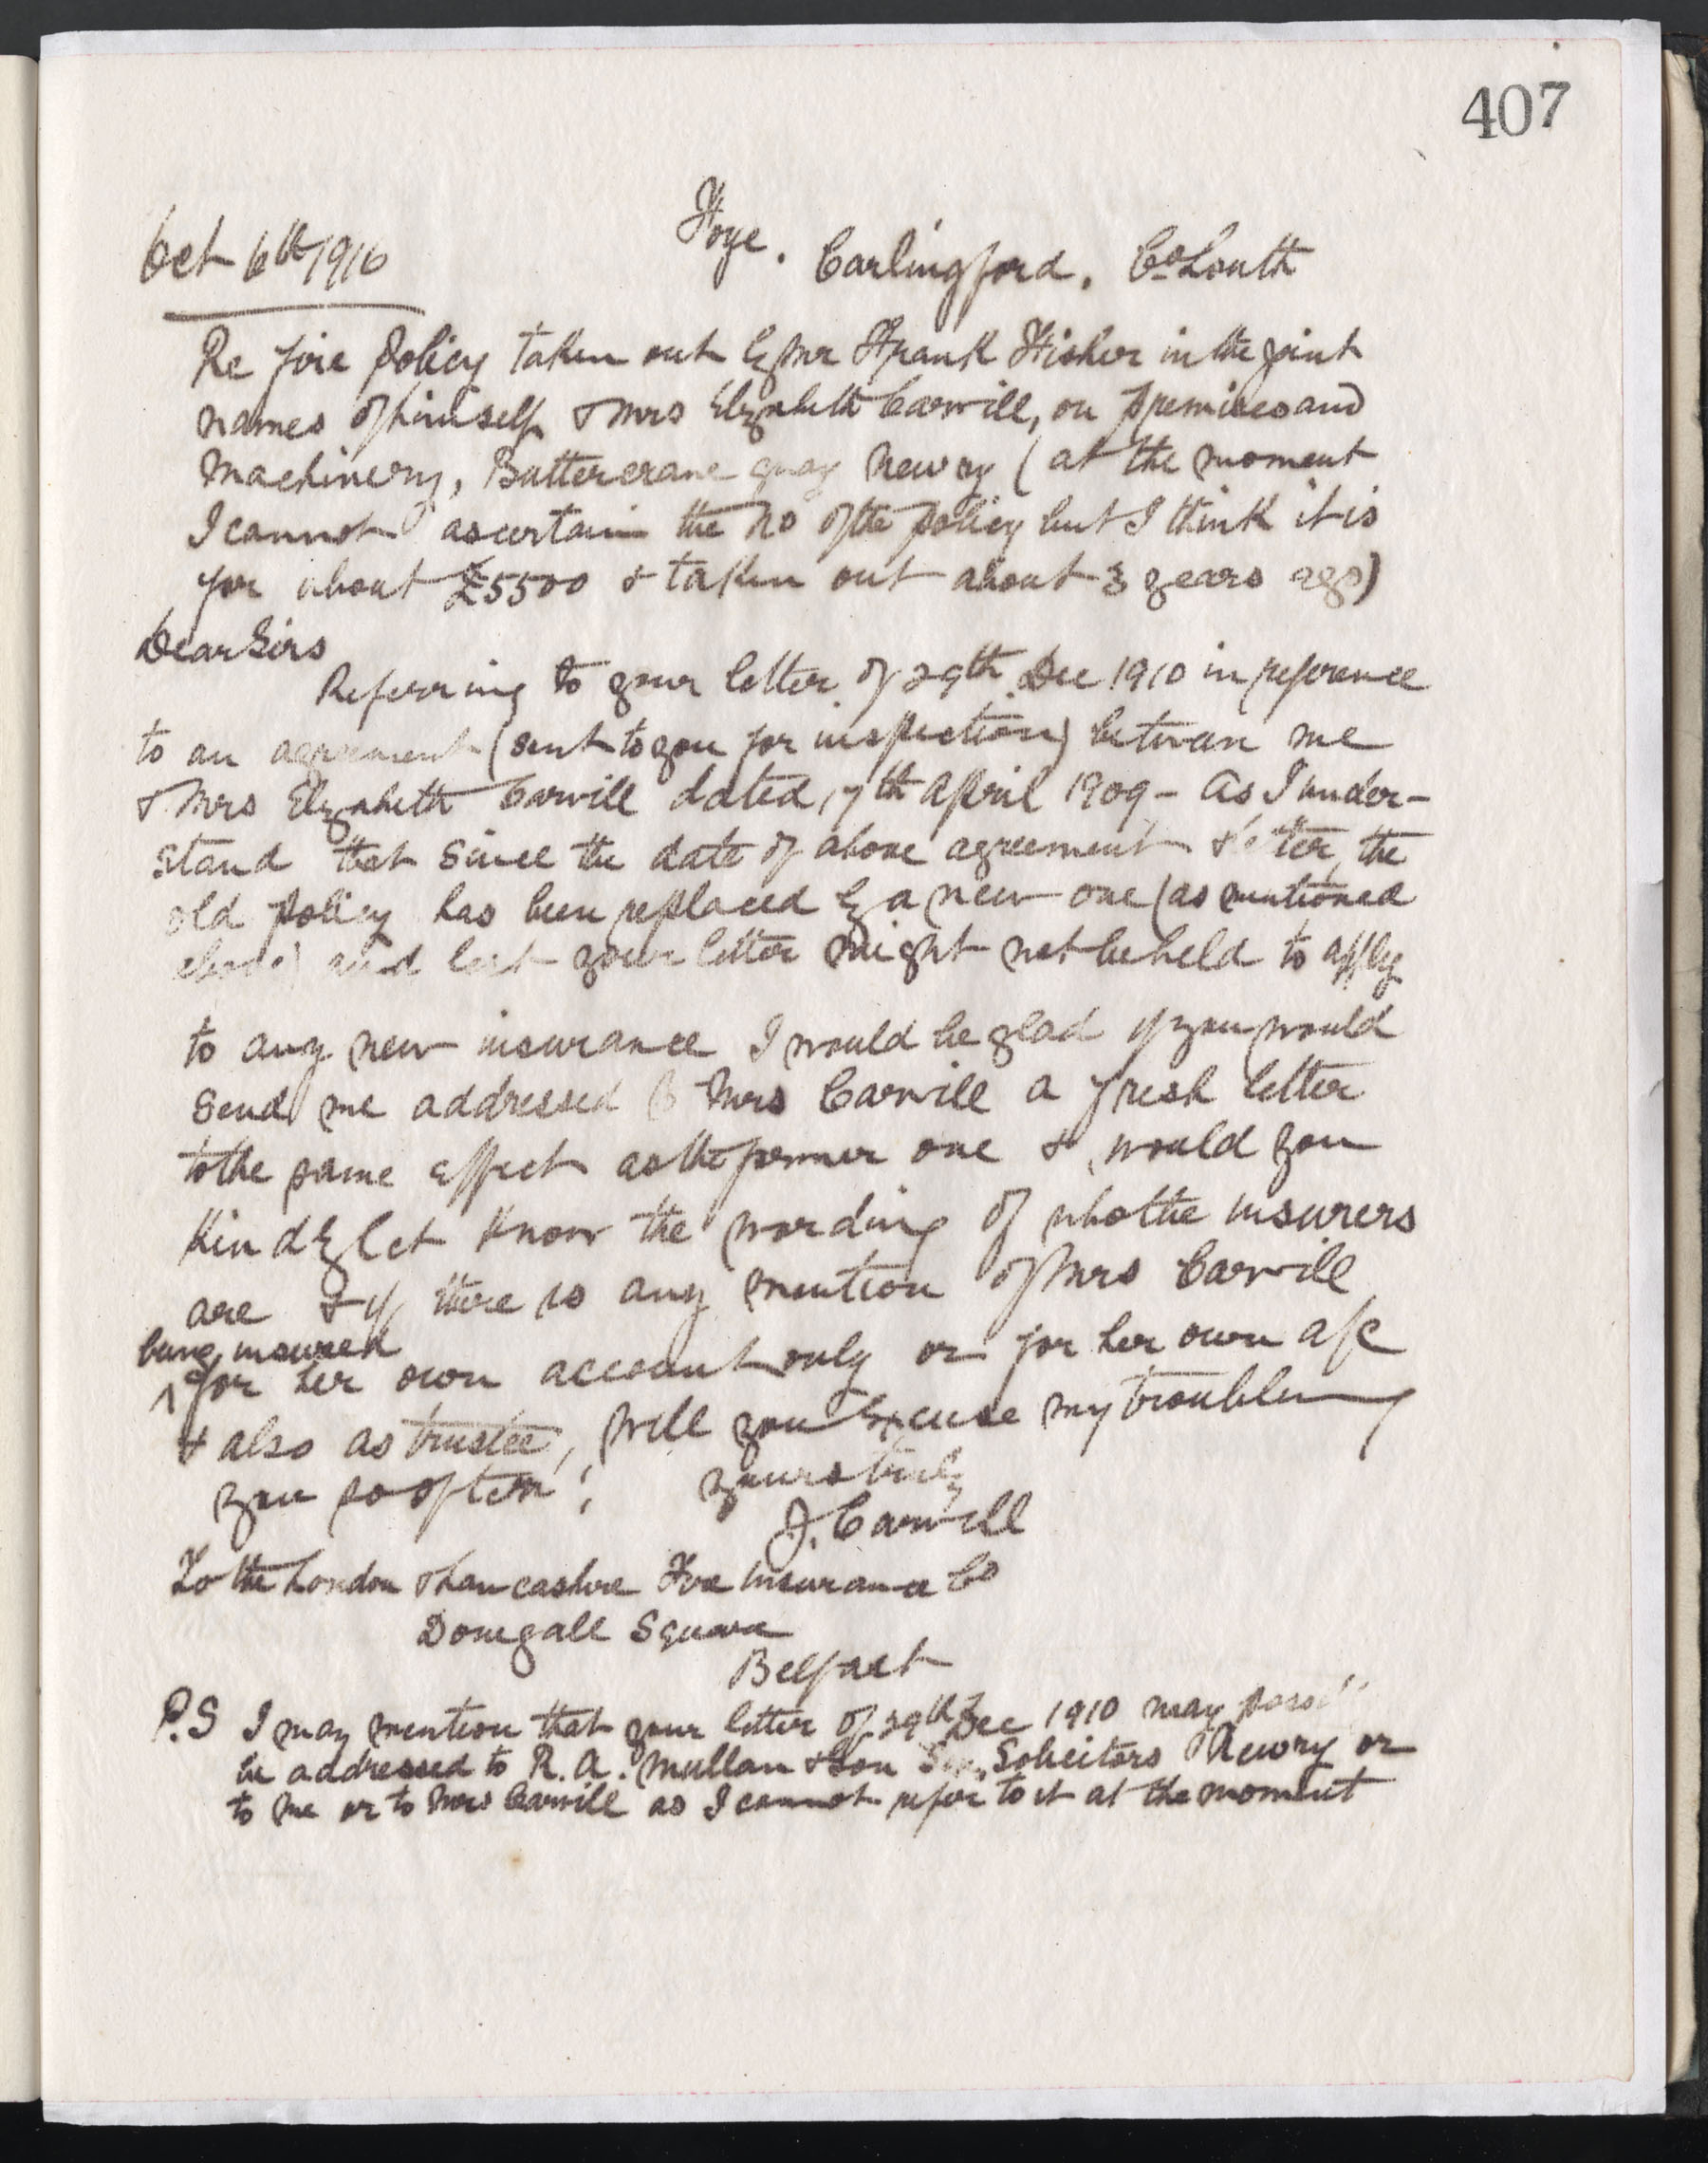 407
Oct 6th 1916
Foye. Carlingford. Co Louth
Re fire policy taken out by Mr Frank Fisher in the joint
names of himself & Mrs Elizabeth Carvill, on premises and
Machinery, Buttercrane quay Newry (at the moment
I cannot ascertain the No of the policy but I think it is
for about £5500 & taken out about 3 years ago)
Dear Sirs
Referring to your letter of 29th Dec 1910 in reference
to an agreement (sent to you for inspection) between me
& Mrs Elizabeth Carvill dated 17th April 1909 - As I under-
stand that since the date of above agreement & letter, the
old policy has been replaced by a new one (as mentioned
above) and lest your letter might not be held to apply
to any new insurance I would be glad if you would
send me addressed to Mrs Carvill a fresh letter
to the same effect as the former one & would you
Kindly let know the wording of who the insurers
are & if there is any mention of Mrs Carvill
being insured
for her own account only or for her own a/c
& also as trustee, Will you excuse my troubling
you so often;
yours truly
J. Carvill
To the London & Lancashire Fire Insurance Co
Donegall Square
Belfast
P.S I may mention that your letter of 29th Dec 1910 may
be addressed to R. A. Mullan & Son Solicitors Newry or
to me or to Mrs Carvill as I cannot refer to it at the moment